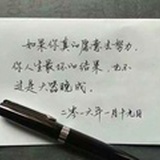 如果你真的愿意去努力，
你人生最坏的结果，也不
过是大器晚成。
二零一六年一月十九日